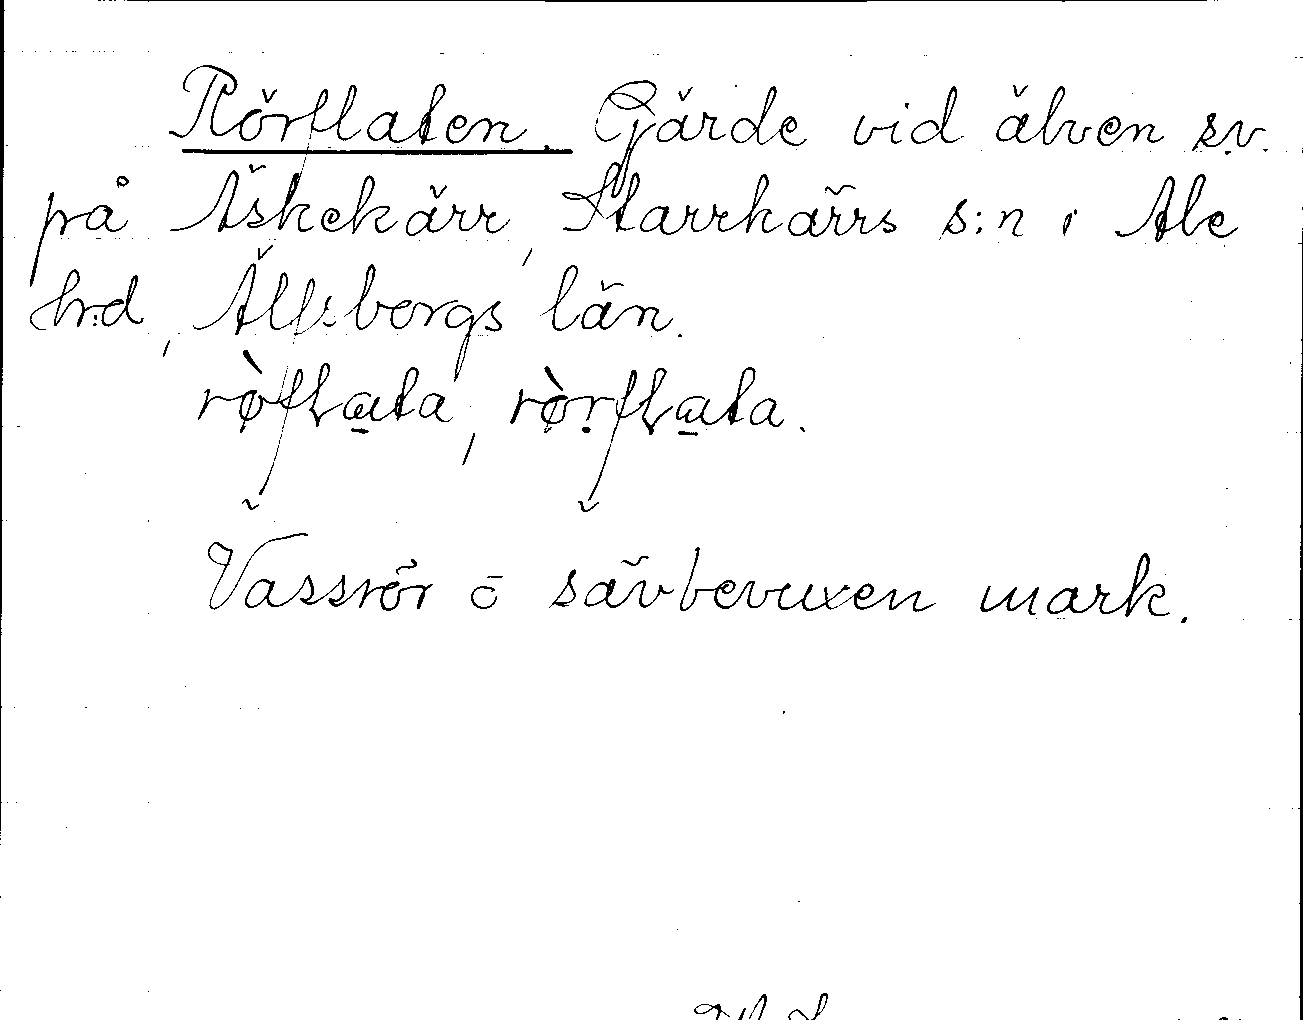 Rörflaten. Gärde vid älven s.v.
på Äskekärr, Starrkärrs s:n i Ale
hrd, Älfsborgs län.
rø̀flɑ̲ta, rø̀ṛflɑ̲ta.
Vassrör o sävbevuxen mark.